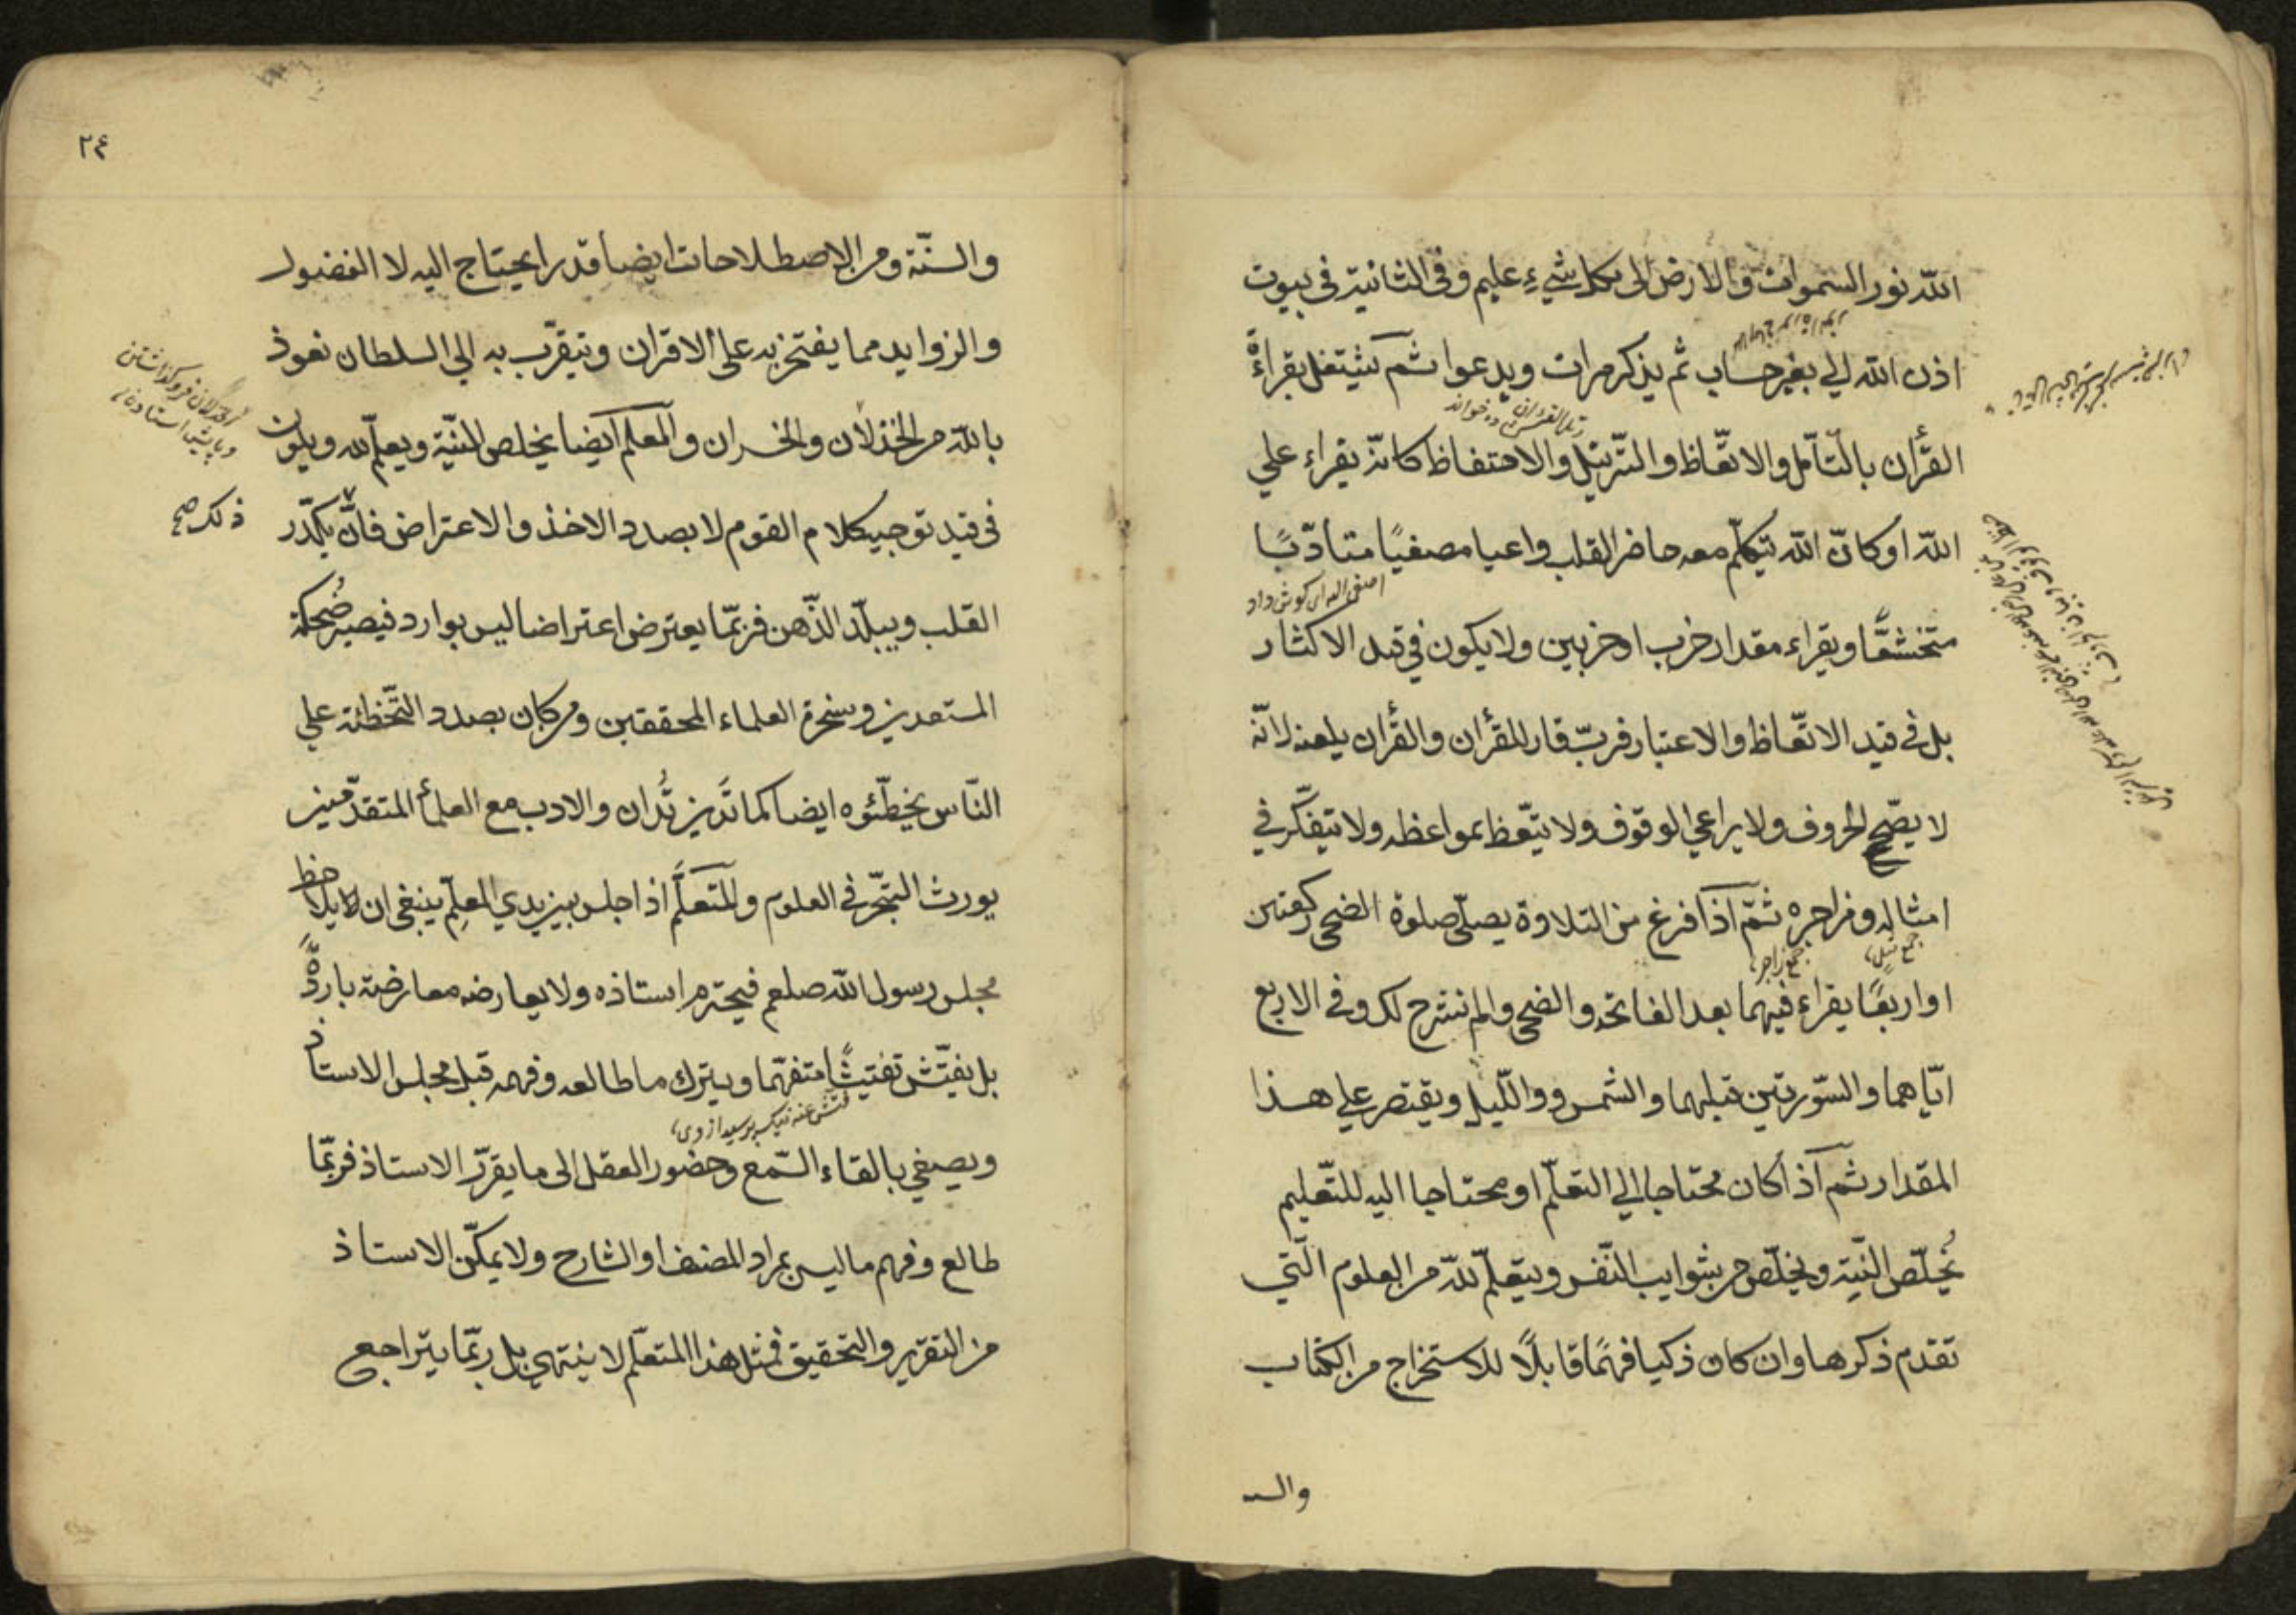 الله نور السموات والارض الى بكل شيء عليم وفى الثانية فى بيوت
اذن الله الي بغير حساب ثم يذكر مرات ويدعوا ثم يشتغل بقراءة
القرأن بالتأمل والاتعاظ والترتيل والاحتفاظ كانه يقراء علي
الله او كان الله يتكلم معه حاضر القلب واعيا مصغيا متادبا
اصغى اليه اى كوش داد
متخشعا ويقراء مقدار حزب او حزبين ولا يكون في قيد الاكثار
بل في قيد الاتعاظ والاعتبار فرب قار للقرأن والقرأن يلعنه لانه
لا يصحح الحروف ولا يراعي الوقوف ولا يتعظ بمواعظه ولا يتفكر في
امثاله وزاجره ثم اذا فرغ من التلاوة يصلى صلوة الضحى ركعتين
او اربعا يقراء فيهما بعد الفاتحه والضحى والم نشرح لك وفى الاربع
اياهما والسورتين قبلهما والشمس والليل ويقتصر علي هذا
المقدار ثم اذا كان محتاجا الي التعلم او محتاجا اليه للتعليم
يخلص النية ويخلص من شوايب النفس ويتعلم لله من العلوم التي
تقدم ذكرها وان كان ذكيا فهما قابلا للاستخراج من الكتاب
والسـ
٢٤
والسنة ومن الاصطلاحات ايضا قدرا يحتاج اليه لا الفضول
والزوايد مما يفتخر به على الاقران ويتقرب به الي السلطان نعوذ
بالله من الخذلان والخسران والمعلم ايضا يخلص النية ويعلم لله ويكون
فى قيد توجيه كلام القوم لا بصدد الاخذ والاعتراض فان يكدر
ذلك صح
القلب ويبلد الذهن فربما يعترض اعتراضا ليس بوارد فيصير ضحكة
المستعدين وسخرة العلماء المحققين ومن كان بصدد التخطئة علي
الناس يخطئوه ايضا كما تدين تدان والادب مع العلمأ المتقدمين
يورث التبحر في العلوم والمتعلم اذا جلس بين يدي المعلم ينبغى ان يلاحظ
مجلس رسول الله صلعم فيحترم استاذه ولا يعارضه معارضة باردة
بل يفتش تفتيشا متفهما ويترك ما طالعه وفهمه قبل مجلس الاستاذ
ويصغي بالقاء السمع وحضور العقل الى ما يقرر الاستاذ فربما
طالع وفهم ما ليس بمراد المصنف او الشارح ولا يمكن الاستاذ
من التقرير والتحقيق فمثل هذا المتعلم لا ينتهي بل ربما يتراجع